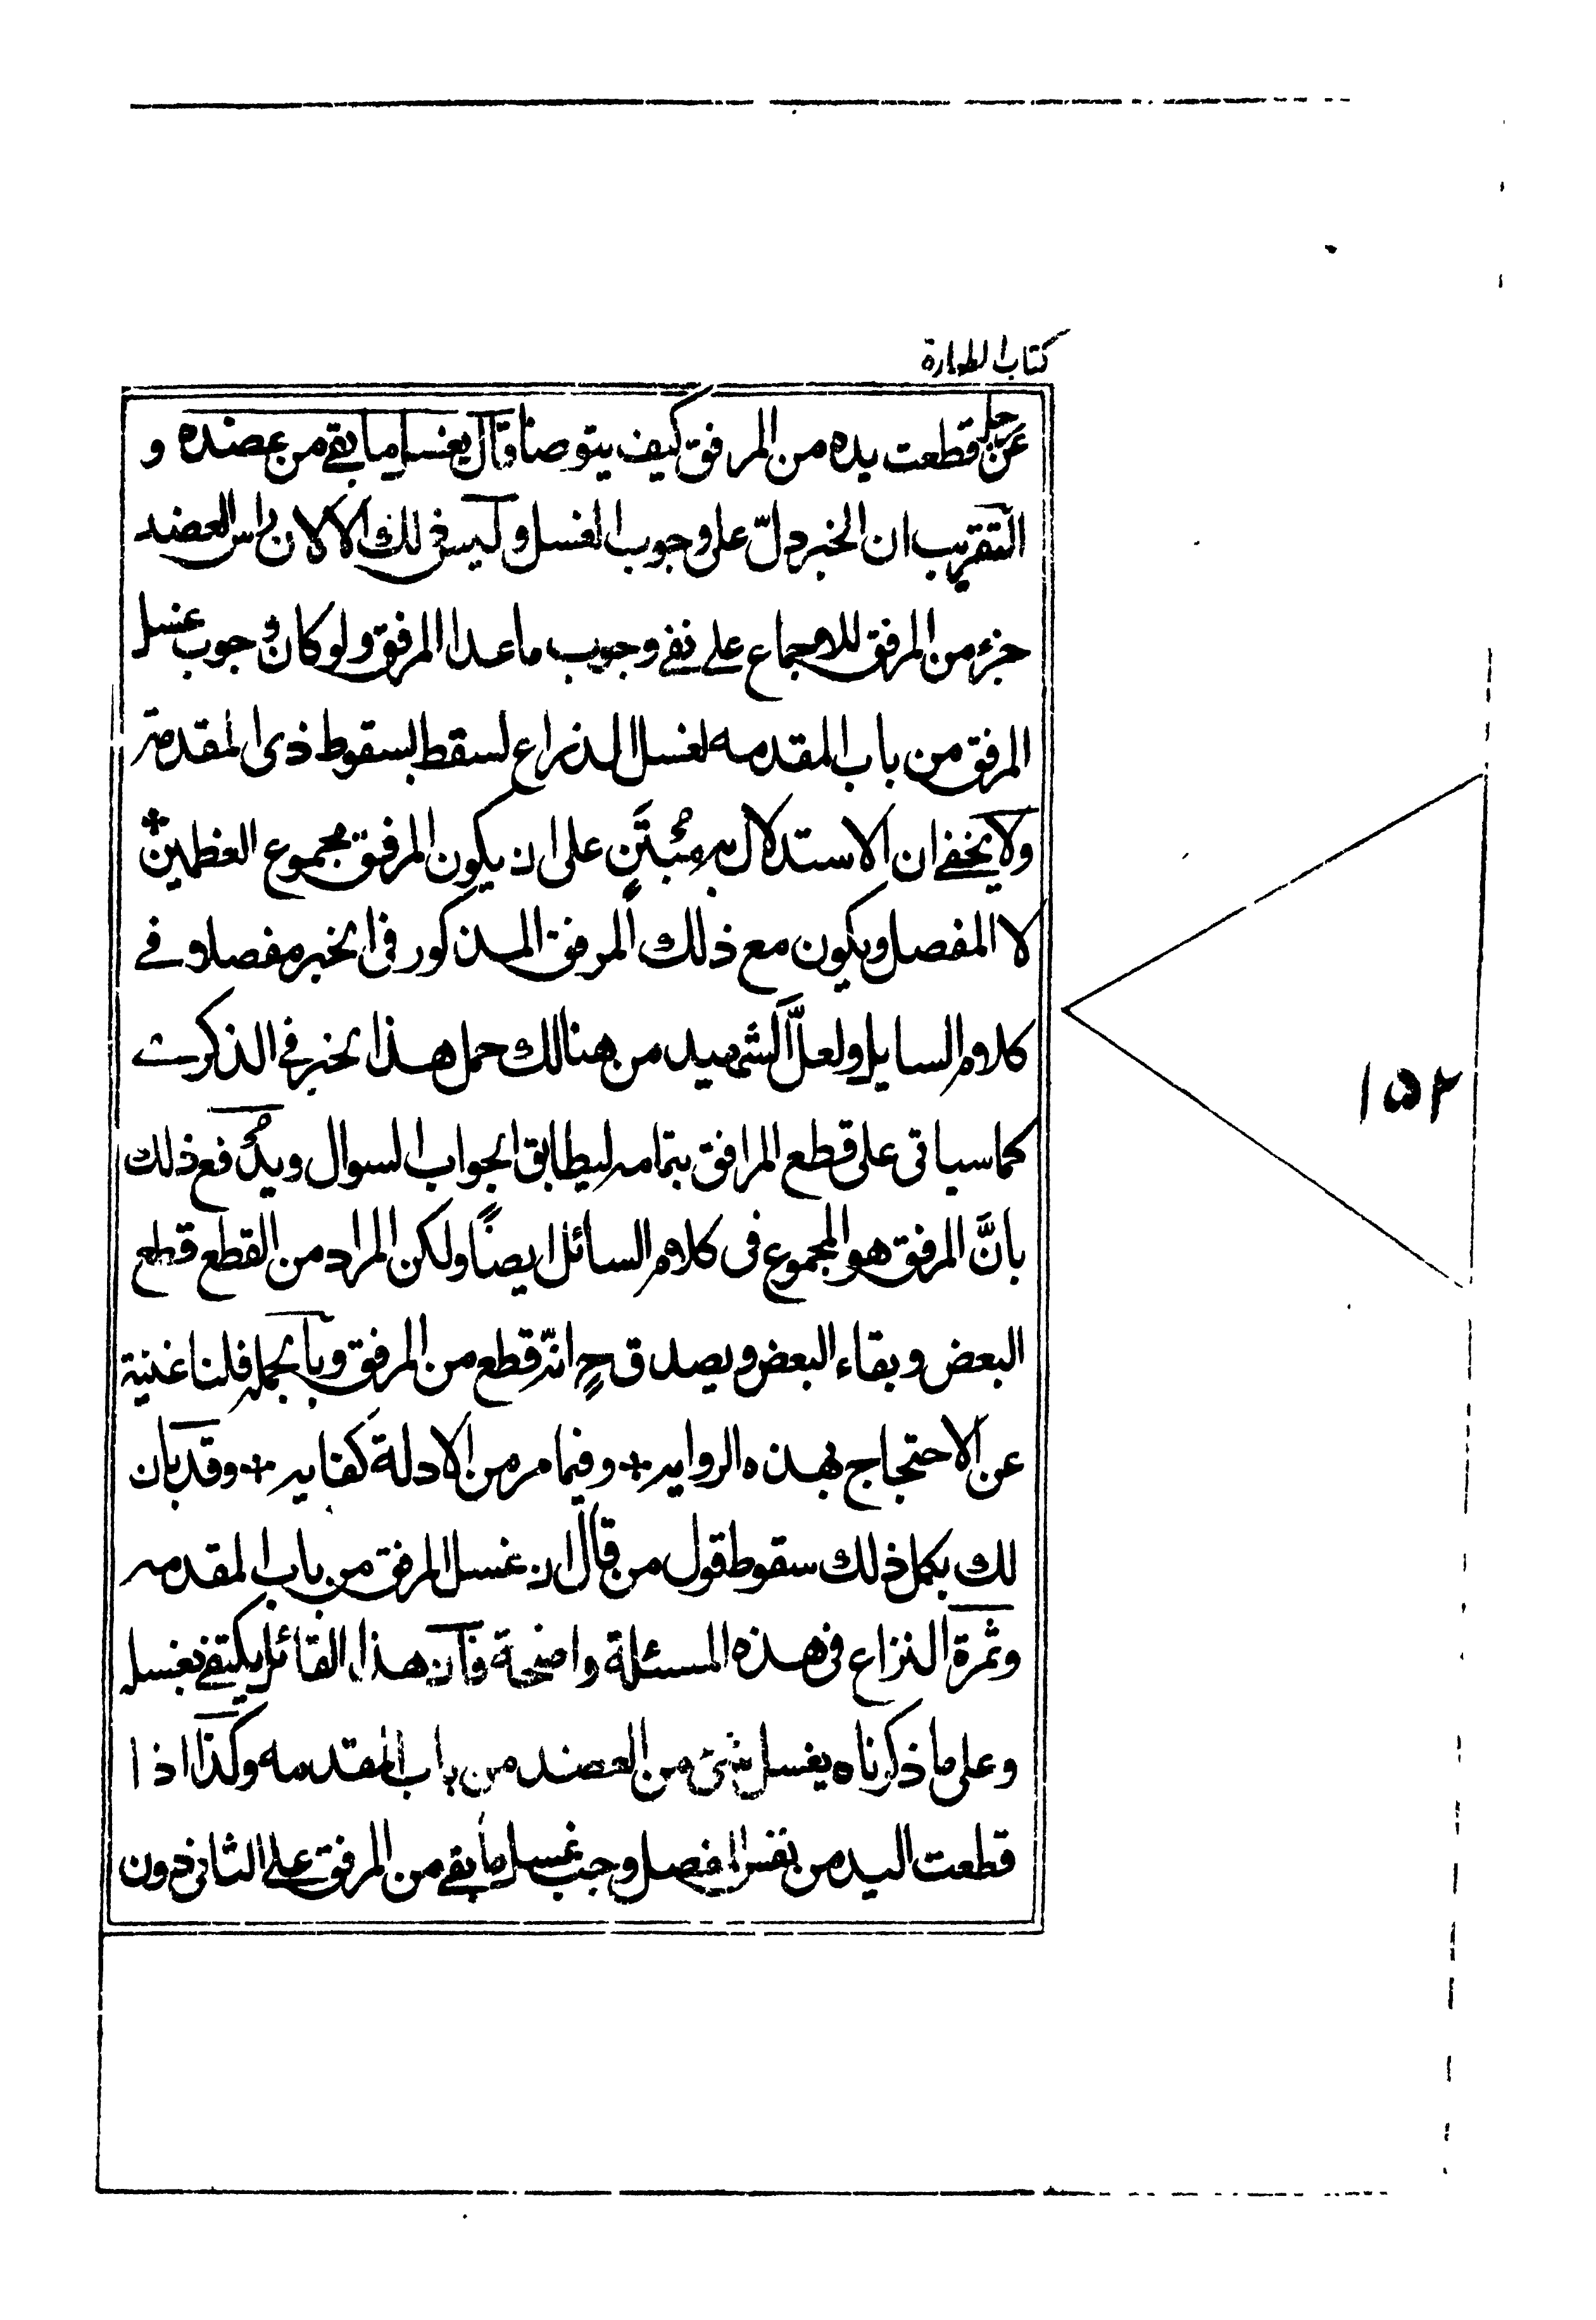 كتاب الطهارة
عن رجل قطعت يده من المرفق كيف يتوضأ قال يغسل ما بقي من عضده و
التقريب ان الخبر دلّ على وجوب الغسل وليس ذلك الا لان راس العضد
جزء من المرفق للاجماع على نفي وجوب ما عدا المرفق ولو كان وجوب غسل
المرفق من باب المقدمه لغسل الذراع لسقط بسقوط ذى المقدمة
ولا يخفى ان الاستدلال به مُبْتَنٍ على ان يكون المرفق مجموع العظمين
لا المفصل ويكون مع ذلك المرفق المذكور في الخبر مفصلا و في
كلام السايل ولعلَّ الشهيد من هنالك حمل هذا الخبر في الذكرى
كما سياتي على قطع المرافق بتمامه ليطابق الجواب السوال ويُدفع ذلك
بانَّ المرفق هو المجموع في كلام السائل ايضًا ولكن المراد من القطع قطع
البعض وبقاء البعض ويصدق ح انّه قطع من المرفق وبالجملة فلنا غنية
عن الاحتجاج بهذه الرواية * وفيما مر من الادلة كفاية * وقد بان
لك بكمل ذلك سقوط قول من قال ان غسل المرفق من باب المقدمه
وثمرة النزاع في هذه المسئلة واضحة فان هذا القائل يكتفي بغسل
وعلى ما ذكرناه يغسل شئ من العضد من باب المقدمه وكذا اذا
قطعت اليد من نفس المفصل وجب غسل ما بقي من المرفق على الثاني دون
١٥٢